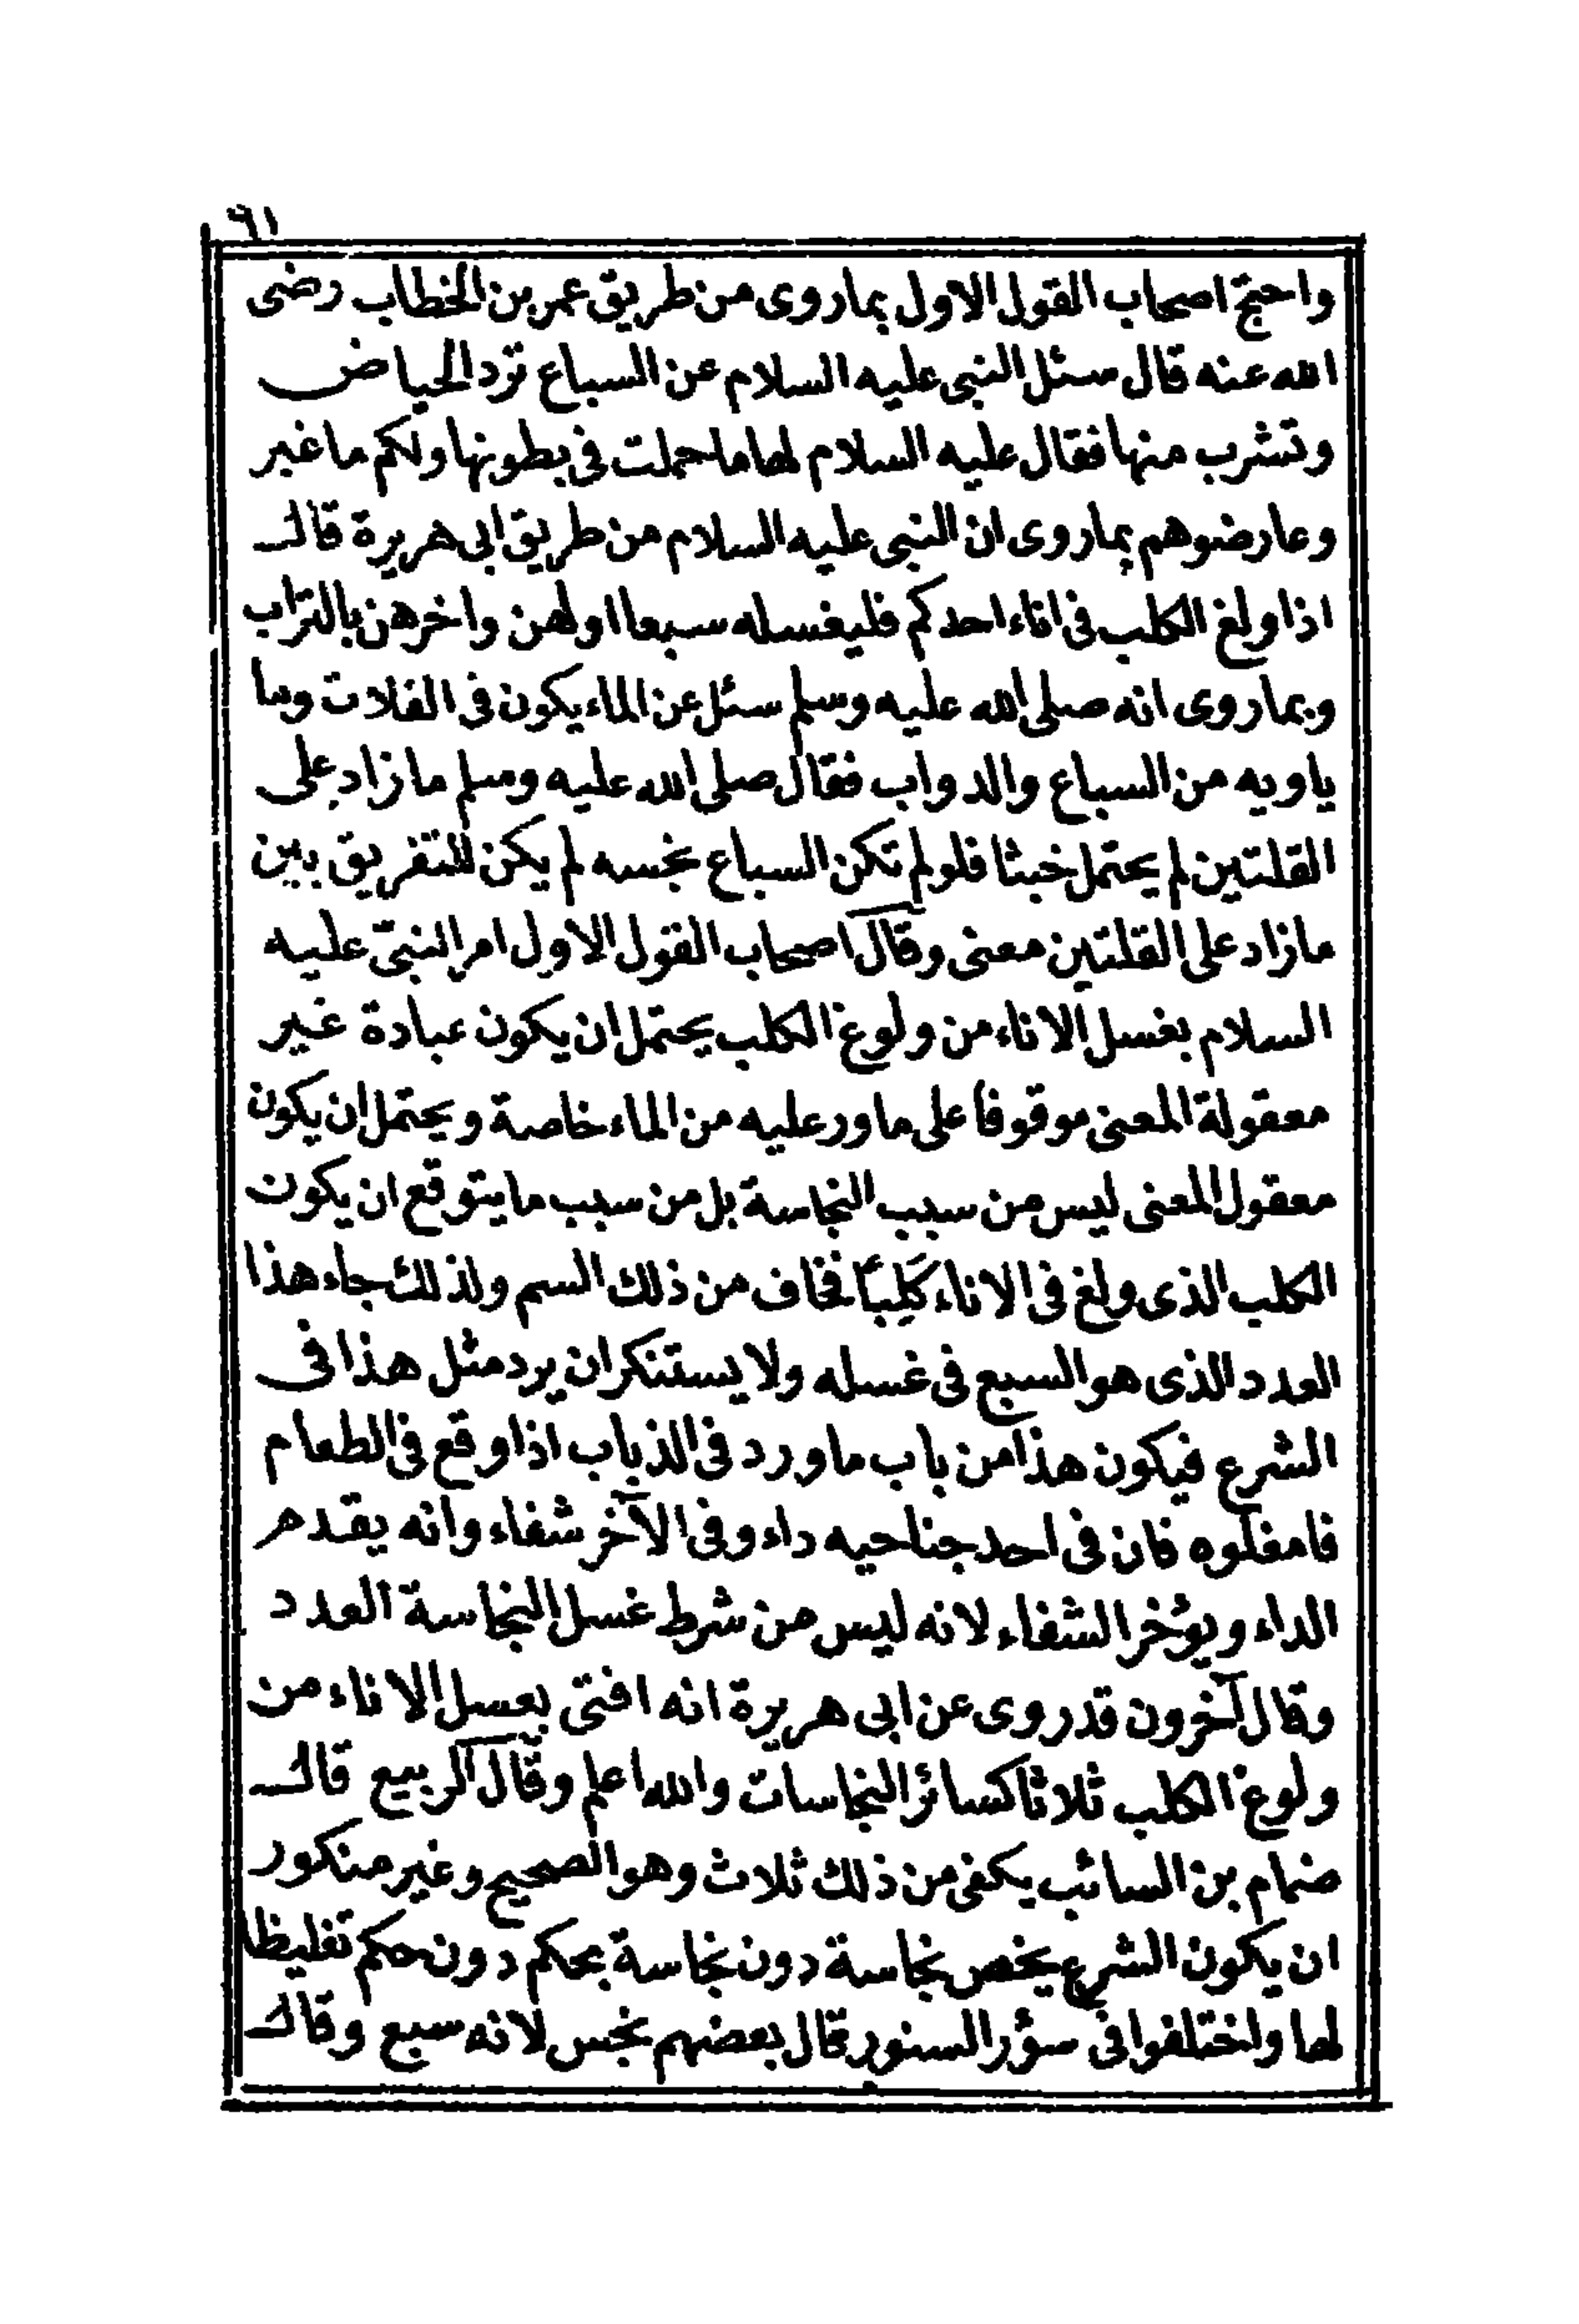 ٦١
واحتج اصحاب القول الاول بماروى من طريق عمر بن الخطاب رضى
الله عنه قال سئل النبى عليه السلام عن السباع ترد الحياض
وتشرب منها فقال عليه السلام لها ما حملت فى بطونها ولكم ما غبر
وعارضوهم بماروى ان النبى عليه السلام من طريق ابى هريرة قال
اذا ولغ الكلب فى اناء احدكم فليغسله سبعا اولهن واخرهن بالتراب
وبماروى انه صلى الله عليه وسلم سئل عن الماء يكون فى الفلات وما
ياويه من السباع والدواب فقال صلى الله عليه وسلم ما زاد على
القلتين لم يحتمل خبثا فلو لم تكن السباع نجسه لم يكن للتفريق بين
ما زاد على القلتين معنى وقال اصحاب القول الاول امر النبىّ عليه
السلام بغسل الاناء من ولوغ الكلب يحتمل ان يكون عبادة غير
معقولة المعنى موقوفا على ما ورد عليه من الماء خاصة ويحتمل ان يكون
معقول المعنى ليس من سبب النجاسة بل من سبب ما يتوقع ان يكون
الكلب الذى ولغ فى الاناء كَلِبًا فخاف من ذلك السم ولذلك جاء هذا
العدد الذى هو السبع فى غسله ولا يستنكر ان يرد مثل هذا فى
الشرع فيكون هذا من باب ما ورد فى الذباب اذا وقع فى الطعام
فامقلوه فان فى احد جناحيه داء وفى الآخر شفاء وانه يقدم
الداء ويؤخر الشفاء لانه ليس من شرط غسل النجاسة العدد
وقال آخرون قد روى عن ابى هريرة انه افتى بعسل الاناء من
ولوغ الكلب ثلاثا كسائر النجاسات والله اعلم وقال الربيع قال
ضمام بن السائب يكفى من ذلك ثلاث وهو الصحيح وغير منكور
ان يكون الشرع يخص نجاسة دون نجاسة بحكم دون حكم تغليظا
لها واختلفوا فى سؤر السنور قال بعضهم نجس لانه سبع وقال